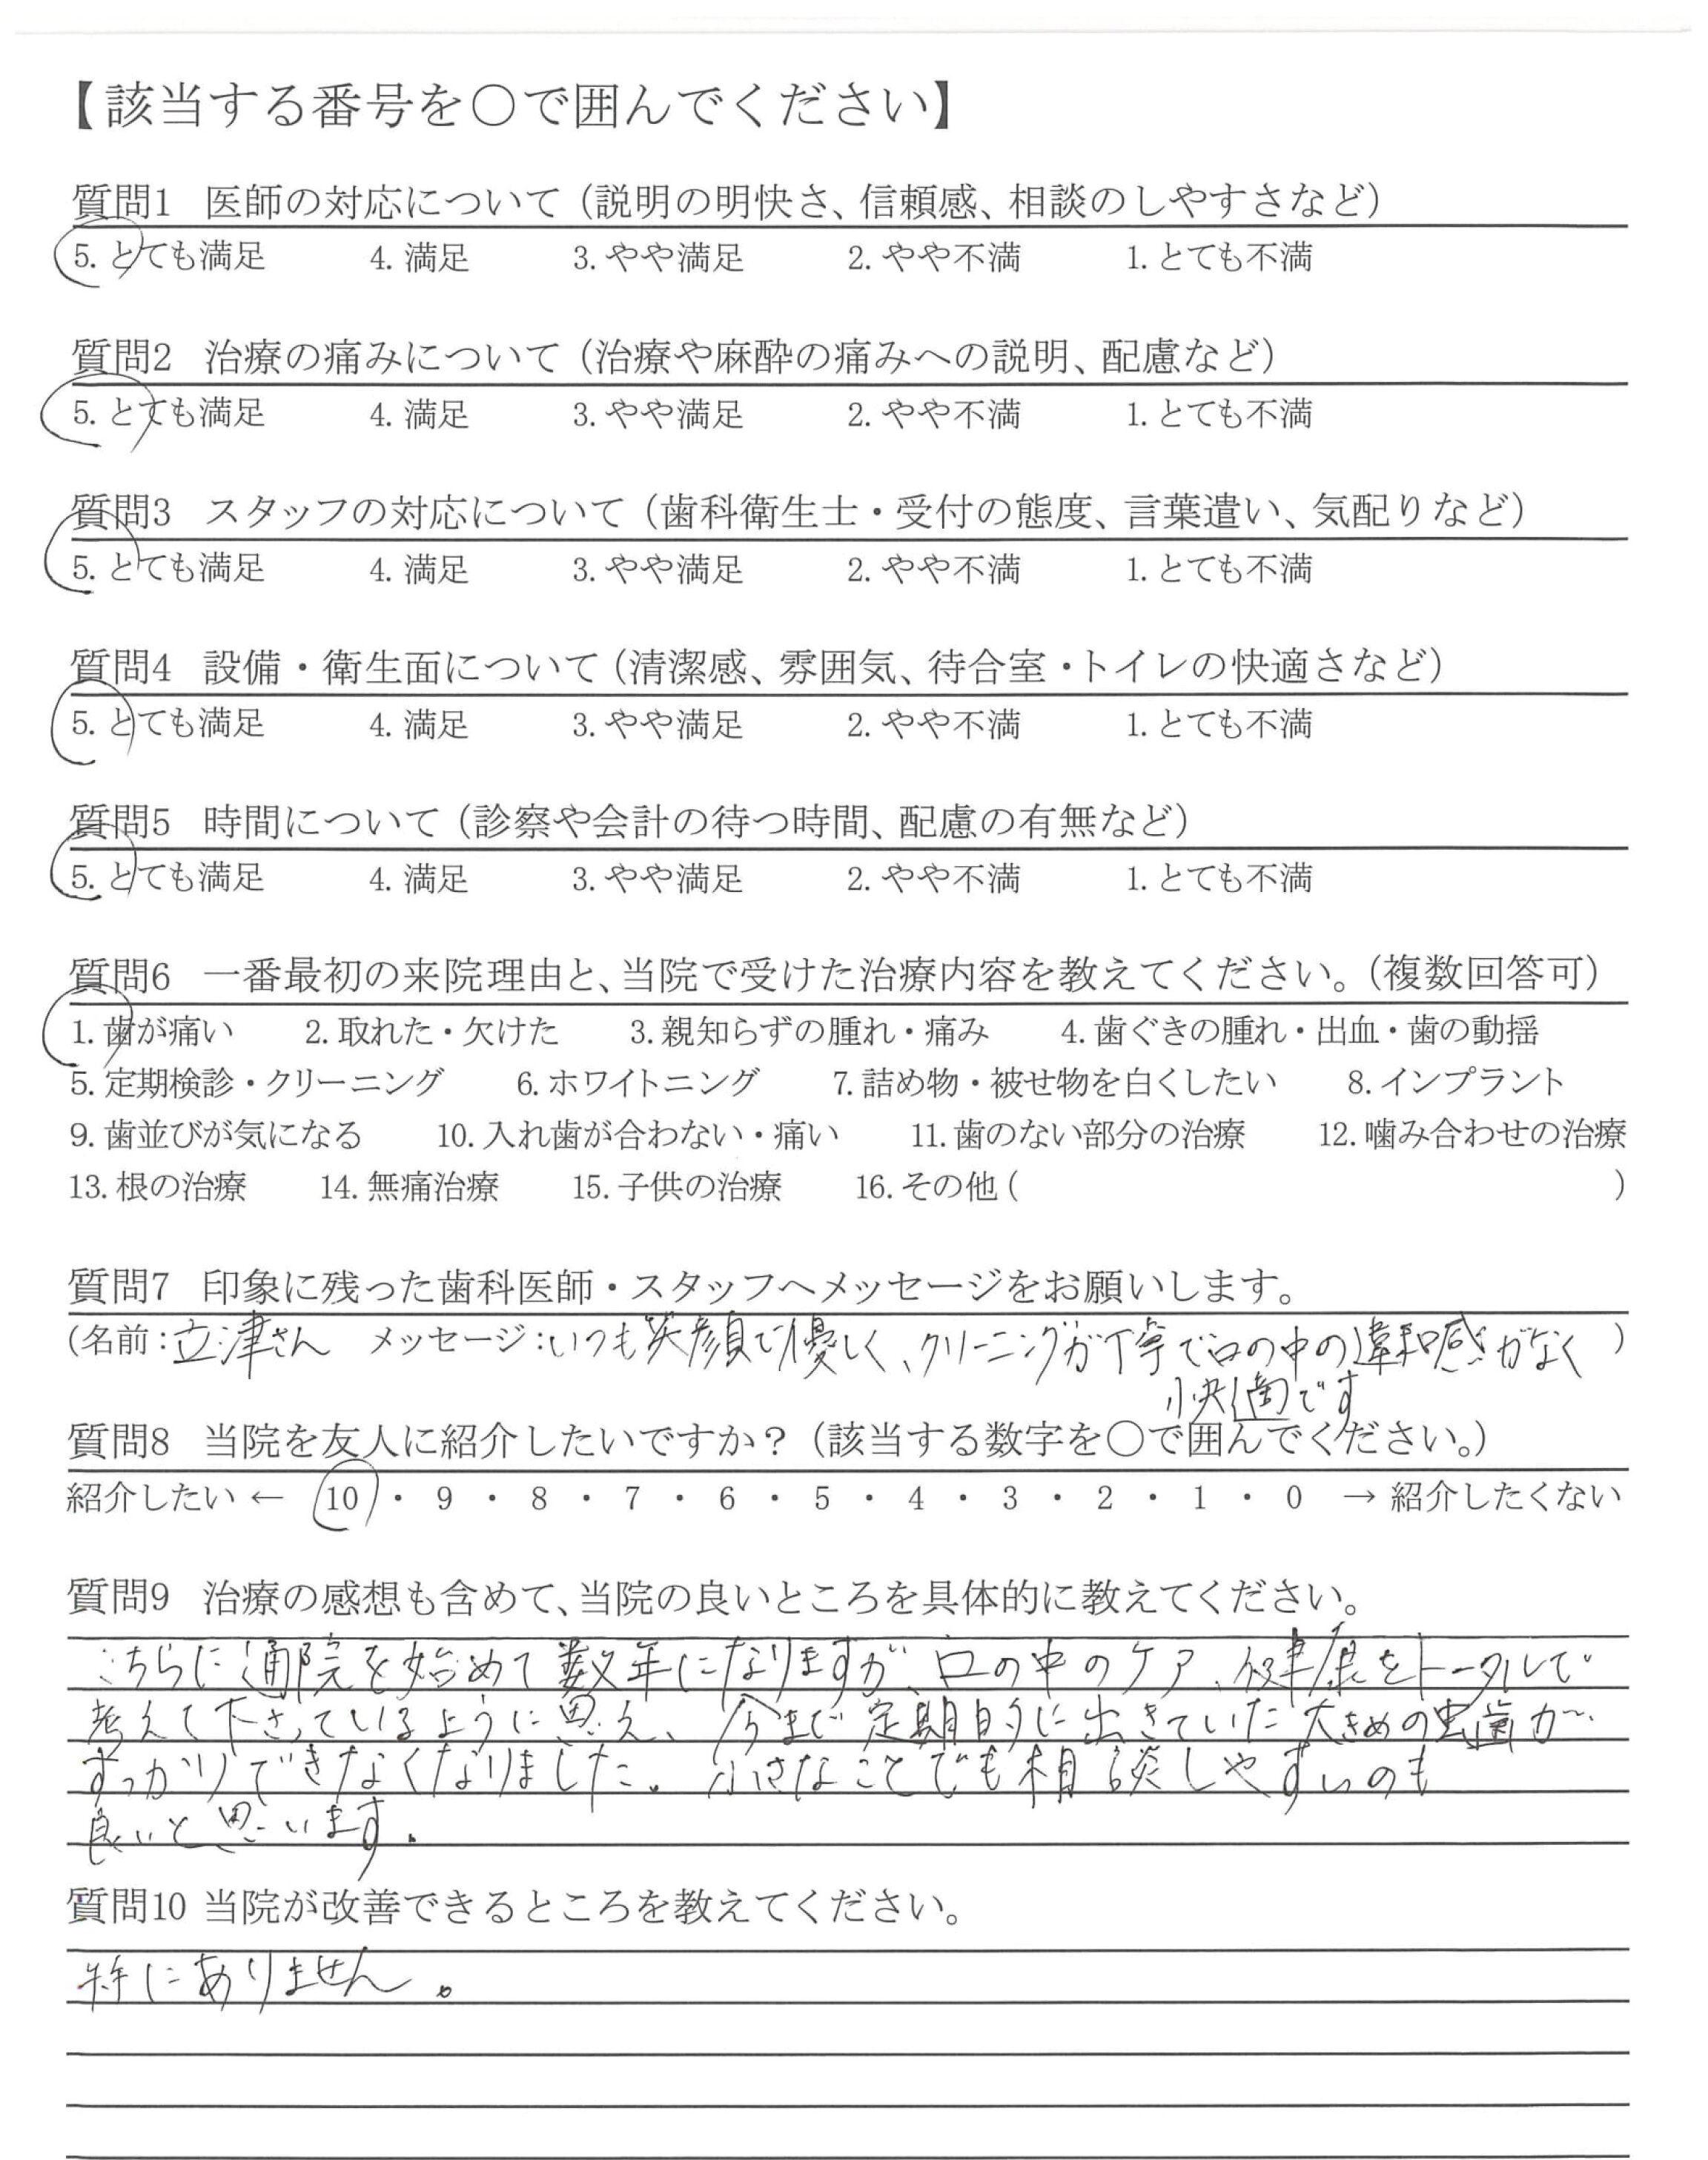 【該当する番号を〇で囲んでください】
質問1 医師の対応について（説明の明快さ、信頼感、相談のしやすさなど）
5. とても満足 4. 満足 3. やや満足 2. やや不満 1. とても不満
質問2 治療の痛みについて（治療や麻酔の痛みへの説明、配慮など）
5. とても満足 4. 満足 3. やや満足 2. やや不満 1. とても不満
質問3 スタッフの対応について（歯科衛生士・受付の態度、言葉遣い、気配りなど）
5. とても満足 4. 満足 3. やや満足 2. やや不満 1. とても不満
質問4 設備・衛生面について（清潔感、雰囲気、待合室・トイレの快適さなど）
5. とても満足 4. 満足 3. やや満足 2. やや不満 1. とても不満
質問5 時間について（診察や会計の待つ時間、配慮の有無など）
5. とても満足 4. 満足 3. やや満足 2. やや不満 1. とても不満
質問6 一番最初の来院理由と、当院で受けた治療内容を教えてください。（複数回答可）
1. 歯が痛い 2. 取れた・欠けた 3. 親知らずの腫れ・痛み 4. 歯ぐきの腫れ・出血・歯の動揺
5. 定期検診・クリーニング 6. ホワイトニング 7. 詰め物・被せ物を白くしたい 8. インプラント
9. 歯並びが気になる 10. 入れ歯が合わない・痛い 11. 歯のない部分の治療 12. 噛み合わせの治療
13. 根の治療 14. 無痛治療 15. 子供の治療 16. その他 ( )
質問7 印象に残った歯科医師・スタッフへメッセージをお願いします。
（名前：立津さん メッセージ：いつも笑顔で優しく、クリーニングが丁寧で口の中の違和感がなく ）
快適です
質問8 当院を友人に紹介したいですか？（該当する数字を〇で囲んでください。）
紹介したい ← 10 ・ 9 ・ 8 ・ 7 ・ 6 ・ 5 ・ 4 ・ 3 ・ 2 ・ 1 ・ 0 → 紹介したくない
質問9 治療の感想も含めて、当院の良いところを具体的に教えてください。
こちらに通院を始めて数年になりますが、口の中のケア、健康をトータルで
考えて下さっているように思え、今まで定期的に出きていた大きめの虫歯が
すっかりできなくなりました。小さなことでも相談しやすいのも
良いと思います.
質問10 当院が改善できるところを教えてください。
特にありません。